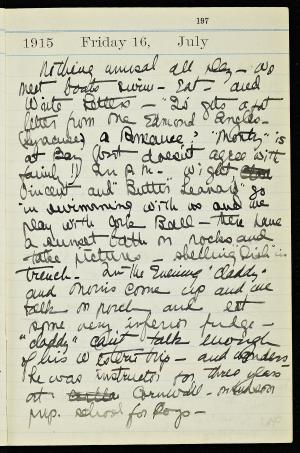 197
1915 Friday 16, July
Nothing unusual all day - we
meet boats swim - Eat - and
Write letters - "Is" gets a fat
letter from one Edmond
(Syracuse) a Romance? "Monty" is
at Bay (post doesn't agree with
family!!) In P.M. Wight
Vincent and "Butti" Leonard go
in swimming with us and we
play with Ball - then have
a sunset bath on rocks and
take pictures - shelling Dish in
trench - In the Evening "daddy"
and Morris come up and we
talk on porch and eat
some very inferior fudge -
"daddy" can't talk enough
of his Western trip - and wonders
he was instructor for three years
at Cornwall - on Hudson
prep. school for Boys -